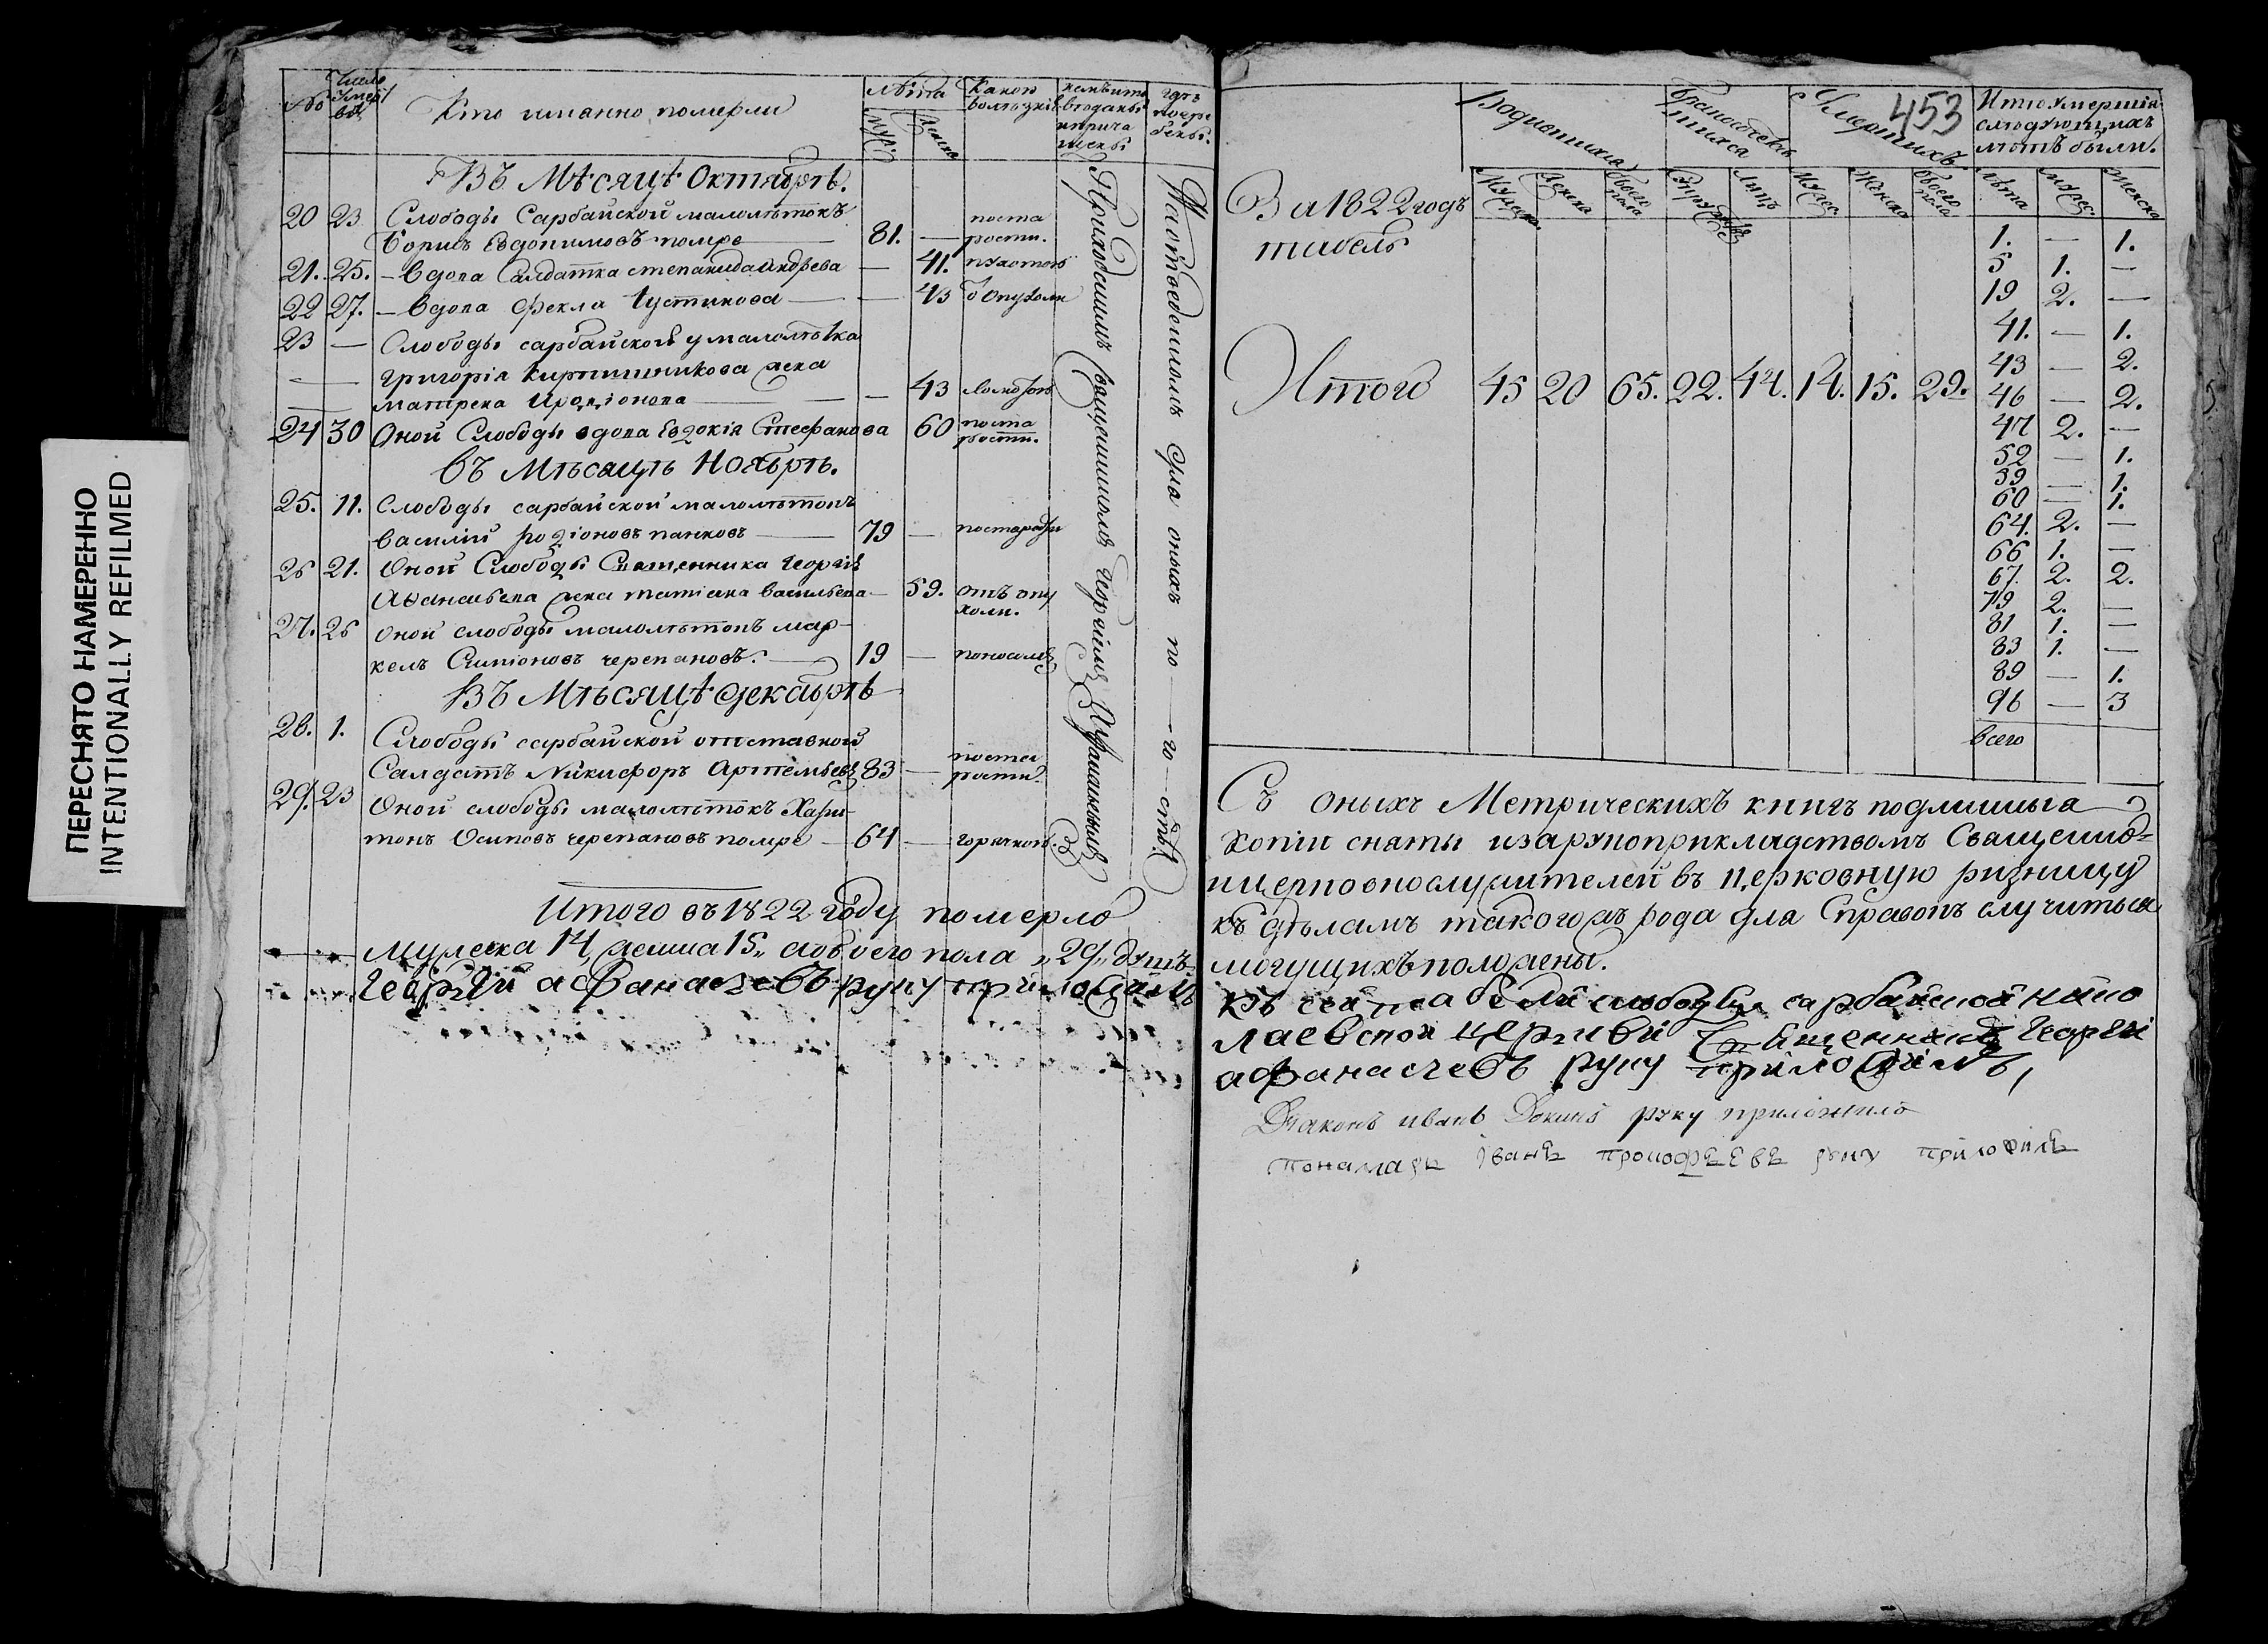 ПЕРЕСНЯТО НАМЕРЕННО
INTENTIONALLY REFILMED
№
Число умер
Кто имянно померли
Лѣта
муж:
женска
Какою болѣзнію
кѣмъ исповѣданы и прича щены
гдѣ погре бены.
Въ Мѣсяцѣ Октябрѣ.
20 23 Слободы Сарбайской малолѣтокъ
Борисъ Евдокимовъ помре — 81. — по ста рости.
21. 25. — вдова Салдатка степанида андреева — 41. чахоткою
22 27. — вдова Фекла Іустинова — — 43 опухоли
23 — Слободы сарбайской у малолѣтка
— — григорія Кирпишникова жена
— — матрена Иродіонова — — 43
24 30 Оной Слободы вдова Евдокія Стефанова 60 по ста рости.
Въ Мѣсяцѣ Ноябрѣ.
25. 11. Слободы сарбайской малолѣтокъ
василий родіоновъ панковъ — 79 — по старости
26 21. Оной Слободы Священника Георгія
Аѳанасьева жена татіана васильева — 59. отъ опу холи.
27. 26 оной слободы малолѣтокъ мар-
келъ Симіоновъ черепановъ. — 19 — поносомъ
Въ Мѣсяцѣ декабрѣ
28. 1. Слободы сарбайской отставной
Салдатъ Никифоръ Артемьевъ 83 — по ста рости.
29. 23 Оной слободы малолѣтокъ Хари-
тонъ Осиповъ черепановъ помре — 64 — горячкою.
Приходскимъ священникомъ Георгіемъ Афанасьевымъ
На отведенномъ для оныхъ по
Итого въ 1822 году померло
мужеска 14, женска 15,, а обоего пола ,,29,, душъ
Георгій афанасьевъ руку приложилъ
453
За 1822 годъ
табель
Родившихся
Бракосочетавшихся
Умершихъ
Изъ умершихъ слѣдующихъ лѣтъ были.
Мужска
Женска
Обоего пола
Лицъ
Мужес.
Женска
Обоего пола
лѣта
мужес.
женска
1. — 1.
5 1. —
19 2. —
41. — 1.
43 — 2.
Итого 45 20 65. 22. 44. 14. 15. 29.
46 — 2.
47 2. —
52 — 1.
59 — 1.
60 — 1.
64. 2. —
66 1. —
67. 2. 2.
79 2. —
81 1. —
83 1. —
89 — 1.
96 — 3
всего
Съ оныхъ Метрическихъ книгъ подлинныя
копіи сняты и за рукоприкладствомъ Священно-
и церковнослужителей въ церковную ризницу
къ дѣламъ такогожъ рода для Справокъ случиться
могущихъ положены.
Къ сей табели слободы сарбайской нико
лаевской церкви Священникъ Георгій
афанасьевъ руку приложилъ,
Диаконъ иванъ руку приложилъ
Понамарь іванъ прокофьевъ руку приложилъ